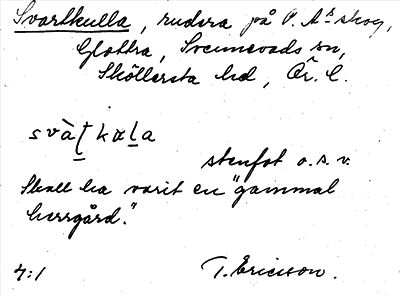 Svartkulla, rudera på P. A:s skog,
Glottra, Svennevads sn,
Sköllersta hd, Ör. l.
svàṭkaḷa
stenfot o. s. v.
Skall ha varit en "gammal
herrgård."
4:1 T. Ericsson.